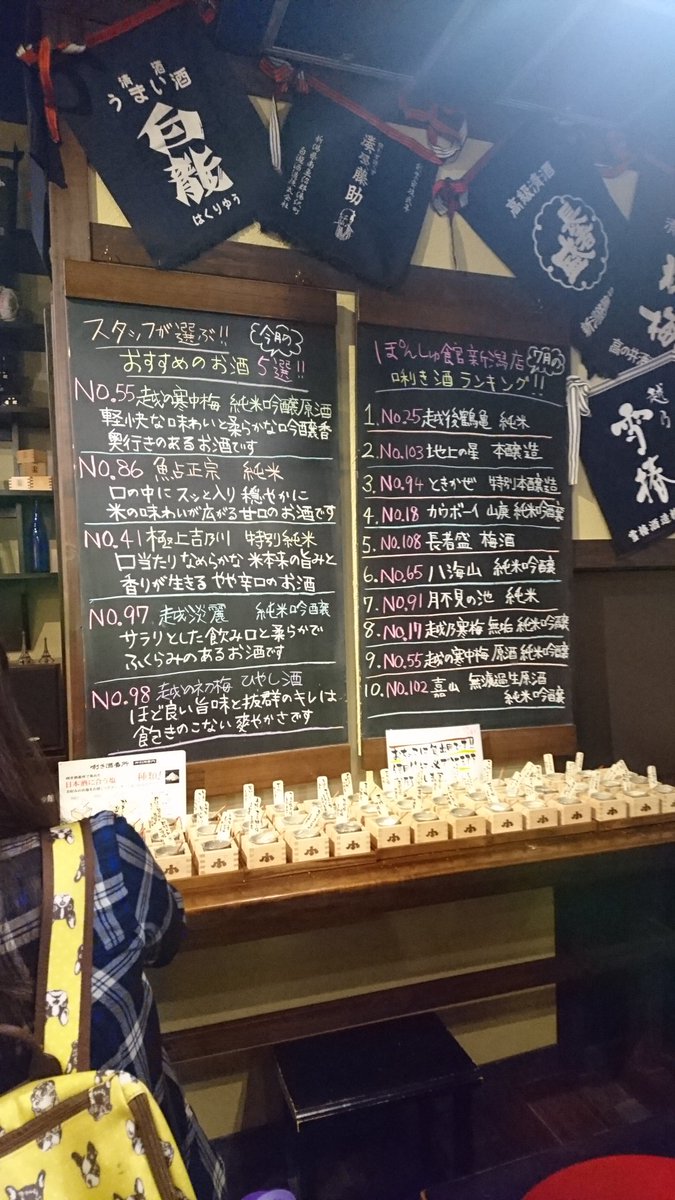 清酒
うまい酒
白龍
はくりゅう
湊屋藤助
新潟県南魚沼郡湯沢町
白瀧酒造株式会社
高級清酒
長者盛
越乃
雪椿
雪椿酒造株
スタッフが選ぶ!!
今月の
おすすめのお酒5選!!
NO.55 越の寒中梅 純米吟醸原酒
軽快な味わいと柔らかな吟醸香
奥行きのあるお酒です
NO.86 魚沼正宗 純米
口の中にスッと入り穏やかに
米の味わいが広がる甘口のお酒です
NO.41 極上吉乃川 特別純米
口当たりなめらかな米本来の旨みと
香りが生きるやや辛口のお酒
NO.97 越淡麗 純米吟醸
サラリとした飲み口と柔らかで
ふくらみのあるお酒です
NO.98 越の初梅 ひやし酒
ほど良い旨味と抜群のキレは
飽きのこない爽やかさです
ぽんしゅ館新潟店 7月の
唎き酒ランキング!!
1. NO.25 越後鶴亀 純米
2. NO.103 地上の星 本醸造
3. NO.94 ときかぜ 特別本醸造
4. NO.18 カウボーイ 山廃 純米吟醸
5. NO.108 長者盛 梅酒
6. NO.65 八海山 純米吟醸
7. NO.91 月不見の池 純米
8. NO.17 越乃寒梅 無垢 純米吟醸
9. NO.55 越の寒中梅 原酒 純米吟醸
10. NO.102 嘉山 無濾過生原酒
純米吟醸
日本酒に合う塩